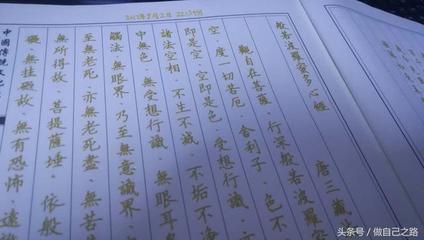 般若波羅蜜多心經
唐三藏
觀自在菩薩。行深般若波羅蜜
空。度一切苦厄。舍利子。色不
即是空。空即是色。受想行識。
諸法空相。不生不滅。不垢不淨
中無色。無受想行識。無眼耳
觸法。無眼界。乃至無意識界。
至無老死。亦無老死盡。無苦
無所得故。菩提薩埵。依般
礙。無挂礙故。無有恐怖。遠
中國傳統文化
头条号 / 做自己之路